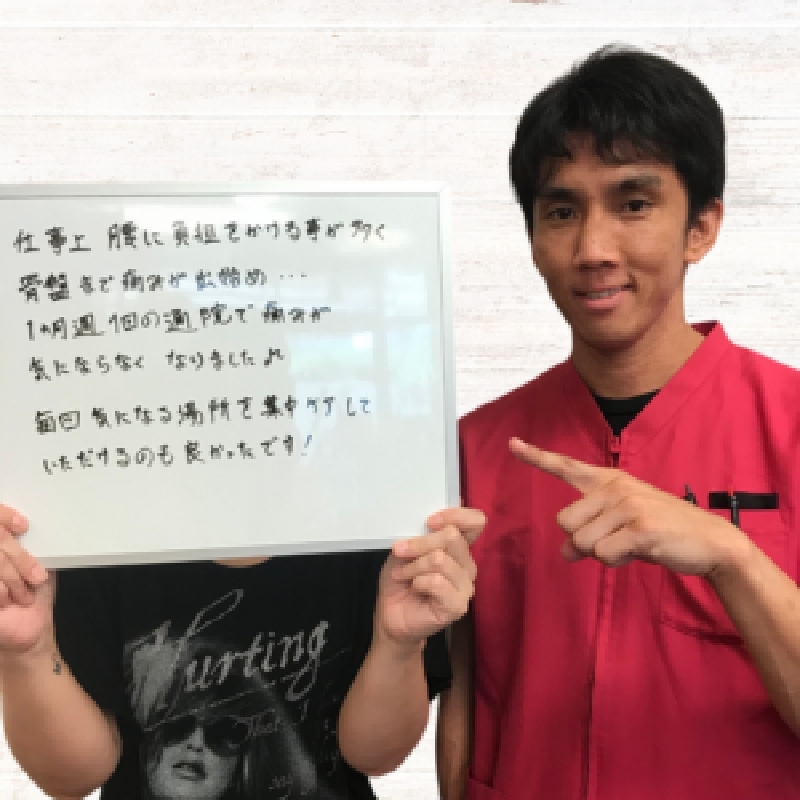 仕事上 腰に負担をかける事が多く
骨盤まで痛みが出始め…
1ヵ月週1回の通院で痛みが
気にならなく なりました♪
毎回気になる場所を集中ケアして
いただけるのも良かったです!
Hurting